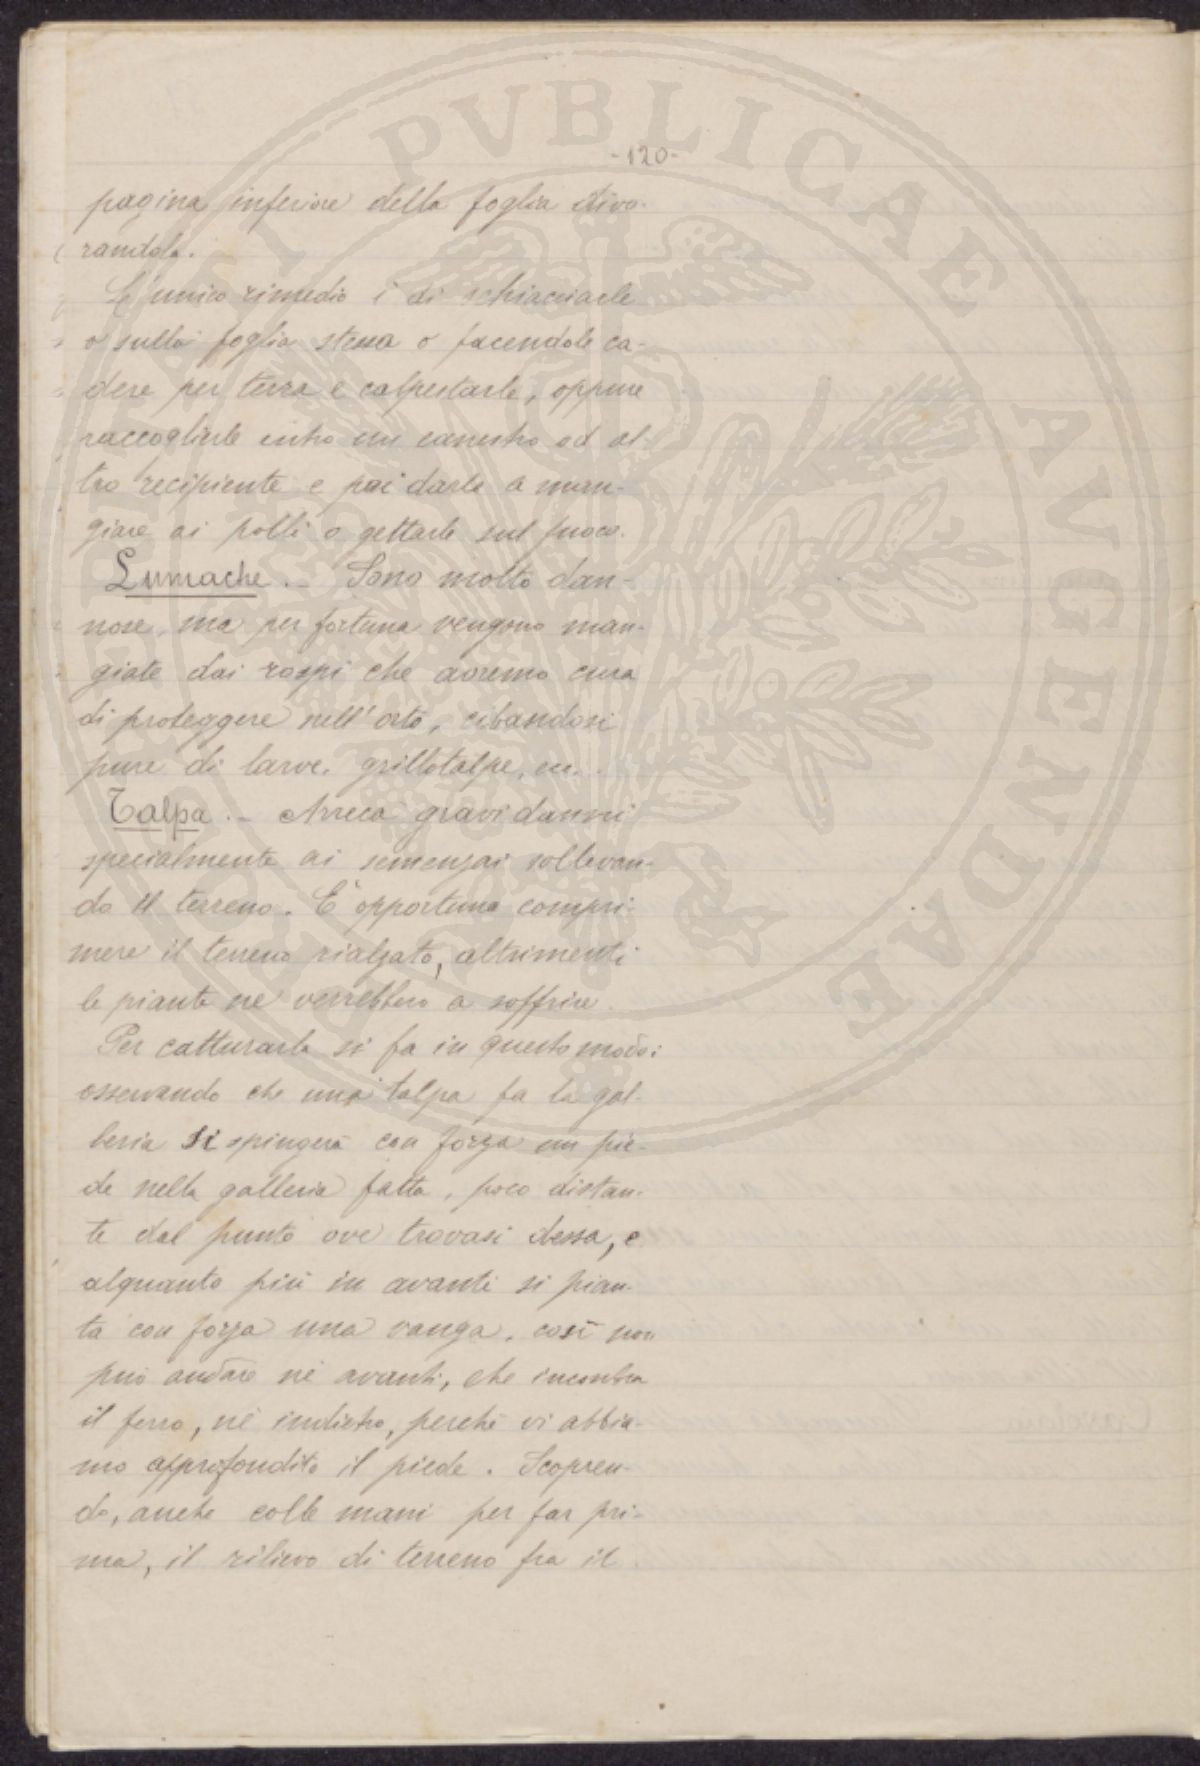 -120-
pagina inferiore della foglia divo-
randola.
L'unico rimedio è di schiacciarle
o sulla foglia stessa o facendole ca-
dere per terra e calpestarle, oppure
raccoglierle entro un canestro od al-
tro recipiente e poi darle a man-
giare ai polli o gettarle sul fuoco.
Lumache. - Sono molto dan-
nose, ma per fortuna vengono man-
giate dai rospi che avremo cura
di proteggere nell'orto, cibandosi
pure di larve, grillotalpe, ecc.
Talpa. - Arreca gravi danni
specialmente ai semenzai sollevan-
do il terreno. È opportuno compri-
mere il terreno rialzato, altrimenti
le piante ne verrebbero a soffrire.
Per catturarla si fa in questo modo:
osservando che una talpa fa la gal-
leria si spingerà con forza un pie-
de nella galleria fatta, poco distan-
te dal punto ove trovasi dessa, e
alquanto più in avanti si pian-
ta con forza una vanga, così non
può andare nè avanti, che incontra
il ferro, nè indietro, perchè vi abbia-
mo approfondito il piede. Scopren-
do, anche colle mani per far pri-
ma, il rilievo di terreno fra il
PVBLICAE AVGENDAE